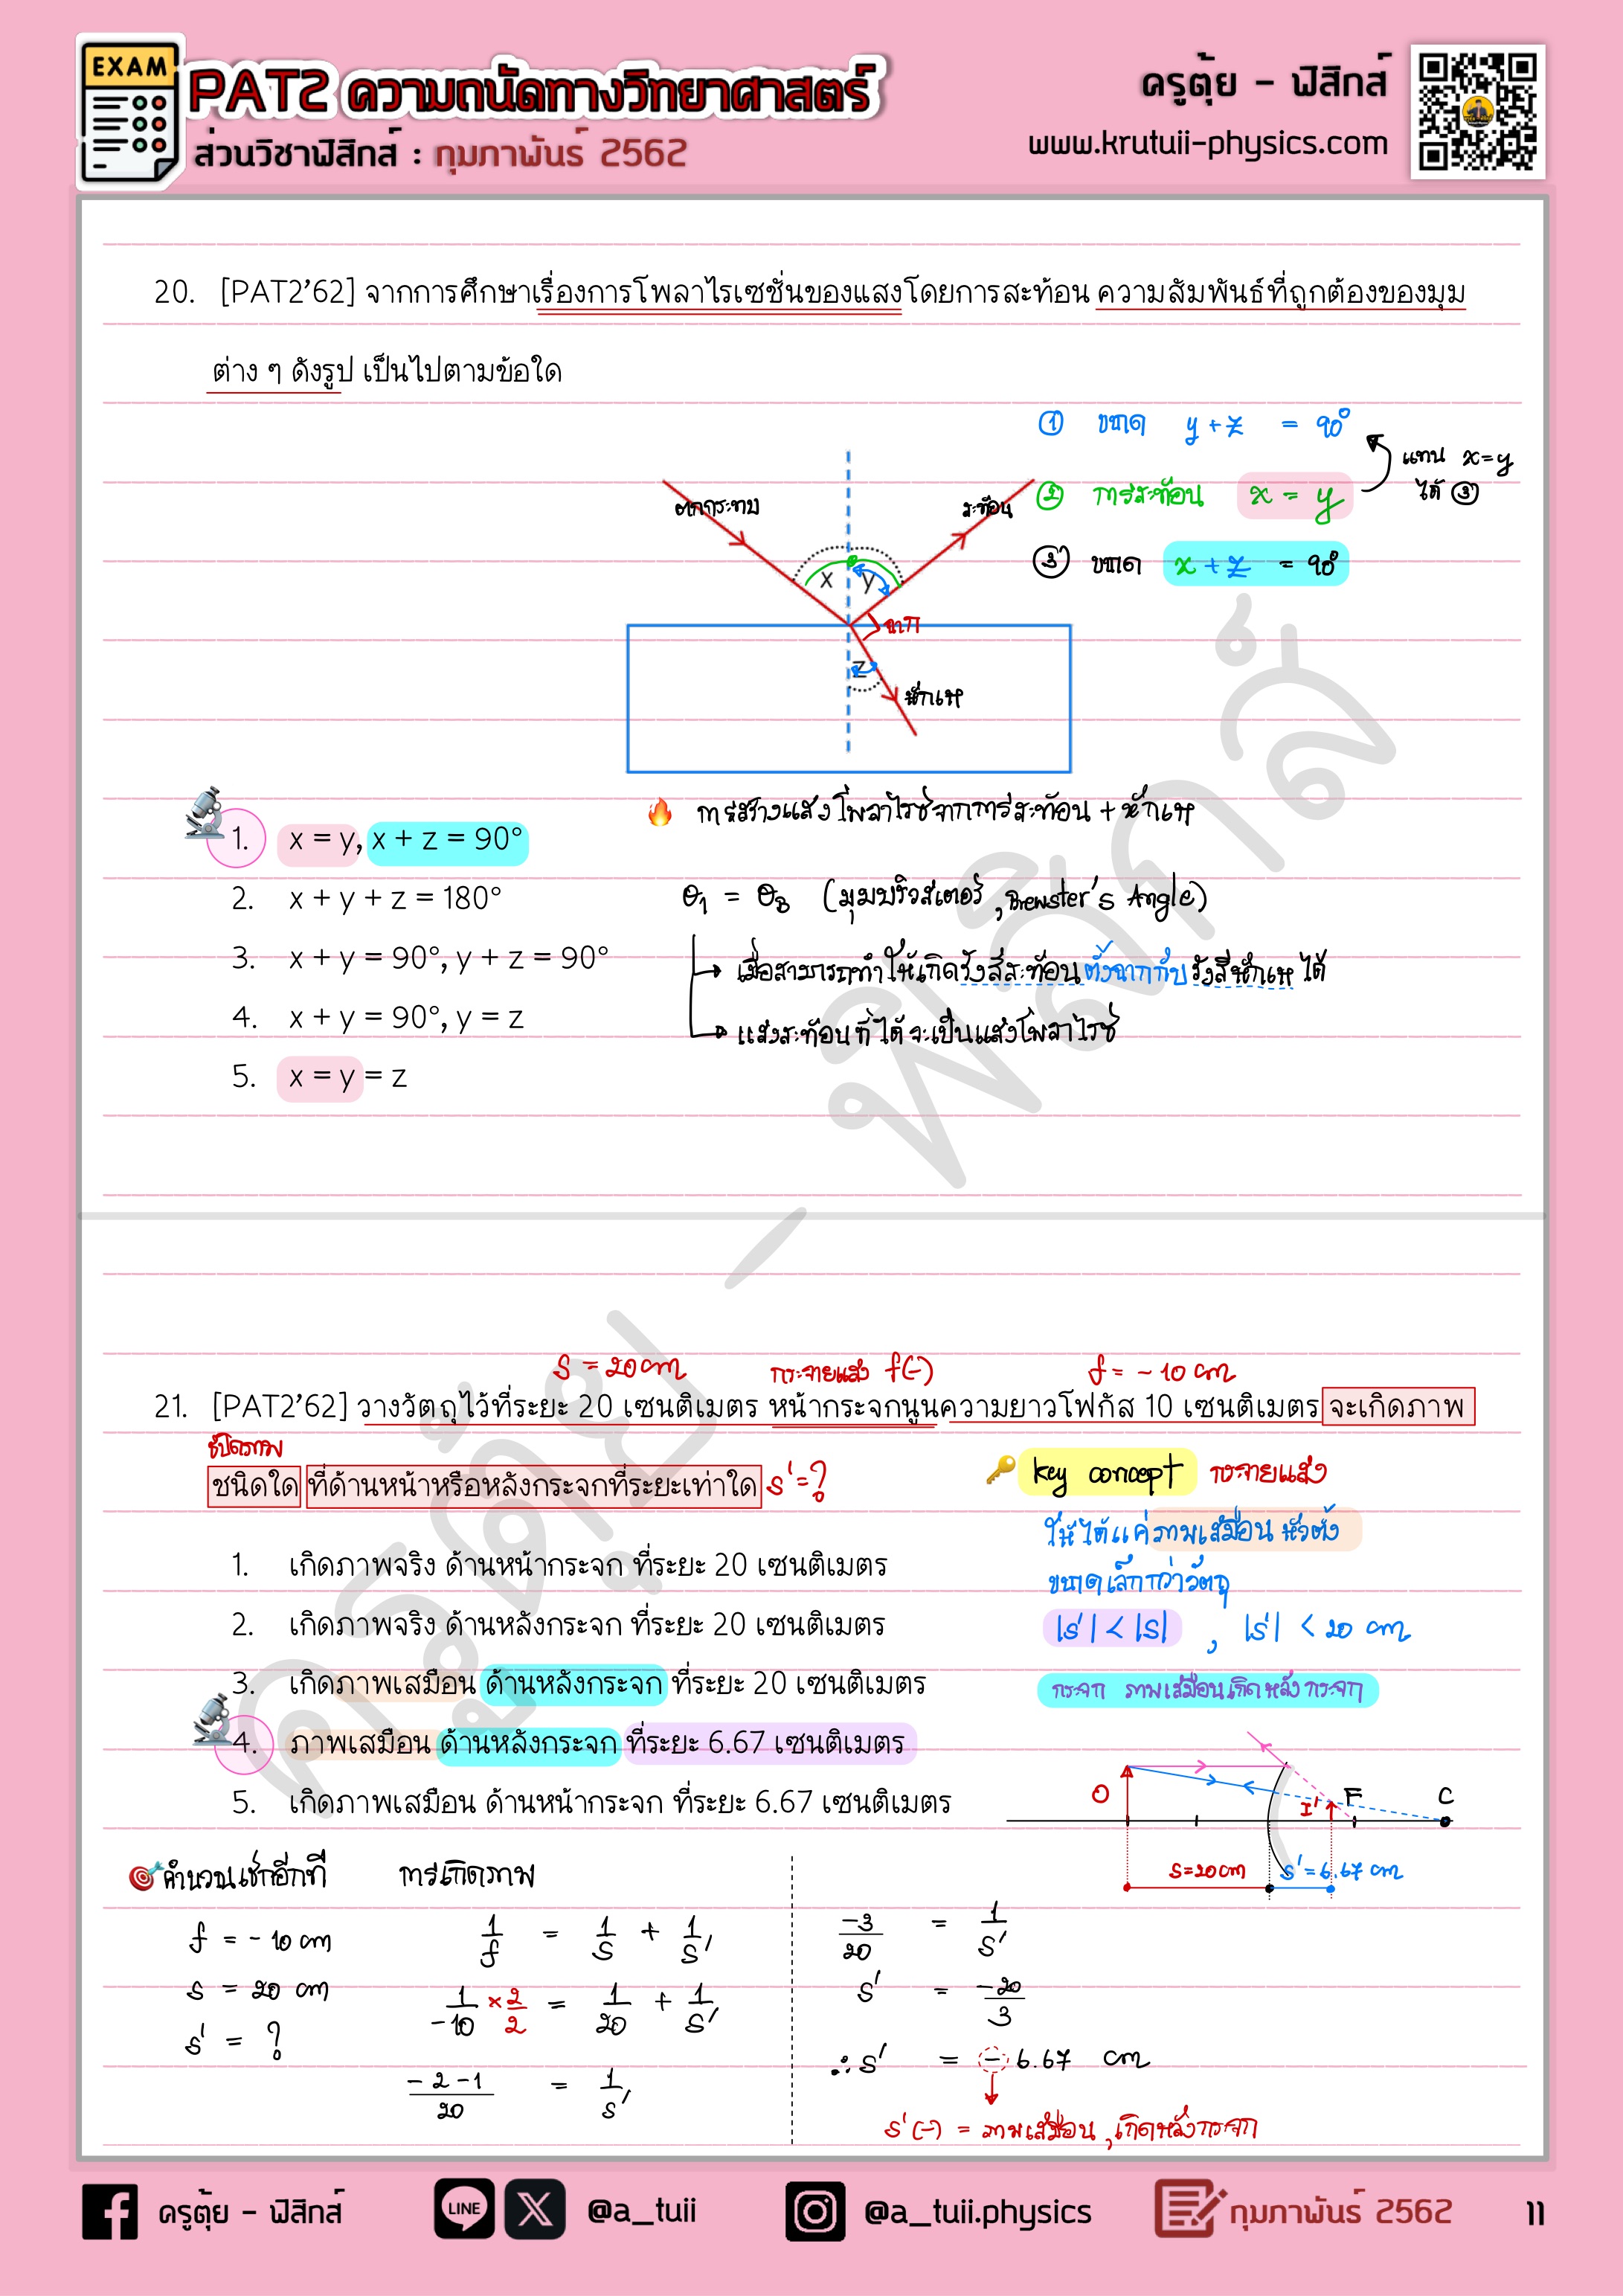 EXAM
PAT2 ความถนัดทางวิทยาศาสตร์
ส่วนวิชาฟิสิกส์ : กุมภาพันธ์ 2562
ครูตุ้ย - ฟิสิกส์
www.krutuii-physics.com
20. [PAT2'62] จากการศึกษาเรื่องการโพลาไรเซชั่นของแสงโดยการสะท้อน ความสัมพันธ์ที่ถูกต้องของมุม
ต่าง ๆ ดังรูป เป็นไปตามข้อใด
① ขนาด y + z = 90°
② การสะท้อน x = y
แทน x = y
ได้ ③
③ ขนาด x + z = 90°
ตกกระทบ
สะท้อน
x y
ฉาก
z
หักเห
1. x = y, x + z = 90°
2. x + y + z = 180°
3. x + y = 90°, y + z = 90°
4. x + y = 90°, y = z
5. x = y = z
การสร้างแสงโพลาไรซ์จากการสะท้อน + หักเห
θ1 = θB (มุมบริวสเตอร์, Brewster's Angle)
เมื่อสามารถทำให้เกิดรังสีสะท้อนตั้งฉากกับรังสีหักเหได้
แสงสะท้อนที่ได้จะเป็นแสงโพลาไรซ์
S = 20 cm กระจายแสง f(-) f = - 10 cm
21. [PAT2'62] วางวัตถุไว้ที่ระยะ 20 เซนติเมตร หน้ากระจกนูนความยาวโฟกัส 10 เซนติเมตร จะเกิดภาพ
ชนิดใด ที่ด้านหน้าหรือหลังกระจกที่ระยะเท่าใด S' = ?
1. เกิดภาพจริง ด้านหน้ากระจก ที่ระยะ 20 เซนติเมตร
2. เกิดภาพจริง ด้านหลังกระจก ที่ระยะ 20 เซนติเมตร
3. เกิดภาพเสมือน ด้านหลังกระจก ที่ระยะ 20 เซนติเมตร
4. ภาพเสมือน ด้านหลังกระจก ที่ระยะ 6.67 เซนติเมตร
5. เกิดภาพเสมือน ด้านหน้ากระจก ที่ระยะ 6.67 เซนติเมตร
key concept กระจายแสง
ให้ได้แค่ภาพเสมือน หัวตั้ง
ขนาดเล็กกว่าวัตถุ
|S'| < |S| , |S'| < 20 cm
กระจก ภาพเสมือนเกิดหลังกระจก
O I' F C
S=20 cm S'=6.67 cm
คำนวณเช็กอีกที การเกิดภาพ
f = - 10 cm
S = 20 cm
S' = ?
1/f = 1/S + 1/S'
1/-10 × 2/2 = 1/20 + 1/S'
-2-1/20 = 1/S'
-3/20 = 1/S'
S' = -20/3
∴ S' = - 6.67 cm
S'(-) = ภาพเสมือน, เกิดหลังกระจก
ครูตุ้ย - ฟิสิกส์
ครูตุ้ย - ฟิสิกส์
LINE
@a_tuii
@a_tuii.physics
กุมภาพันธ์ 2562
11